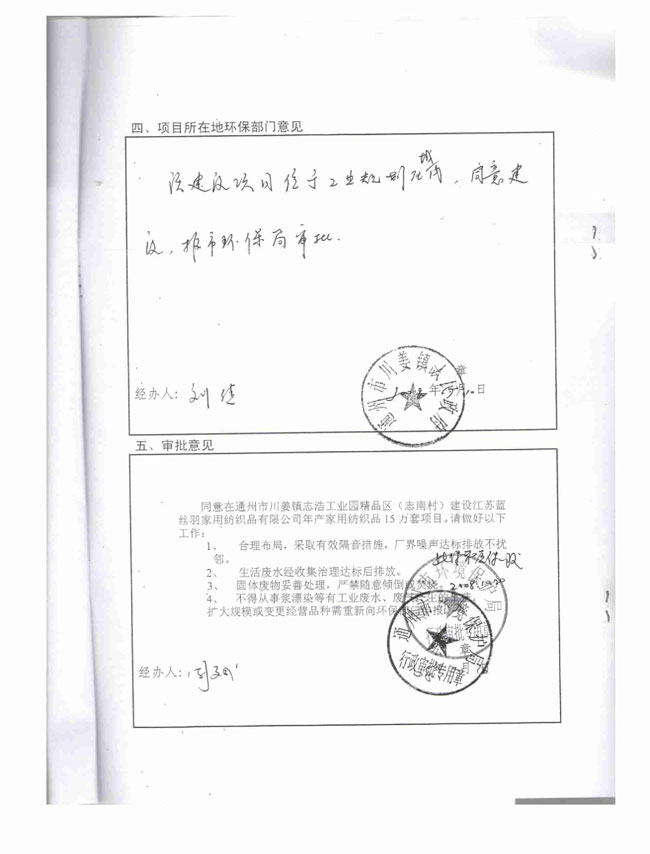 四、项目所在地环保部门意见
该建设项目位于工业规划区域内，同意建
设，报市环保局审批.
通州市川姜镇人民政府
章
年 月 日
经办人：刘
五、审批意见
同意在通州市川姜镇志浩工业园精品区（志南村）建设江苏蓝
丝羽家用纺织品有限公司年产家用纺织品15万套项目。请做好以下
工作：
1、 合理布局，采取有效隔音措施，厂界噪声达标排放不扰
邻。
2、 生活废水经收集治理达标后排放。
3、 固体废物妥善处理，严禁随意倾倒或焚烧。
4、 不得从事浆漂染等有工业废水、废
扩大规模或变更经营品种需重新向环保
2008.10.30
通州市环境保护局
行政审批专用章
经办人：